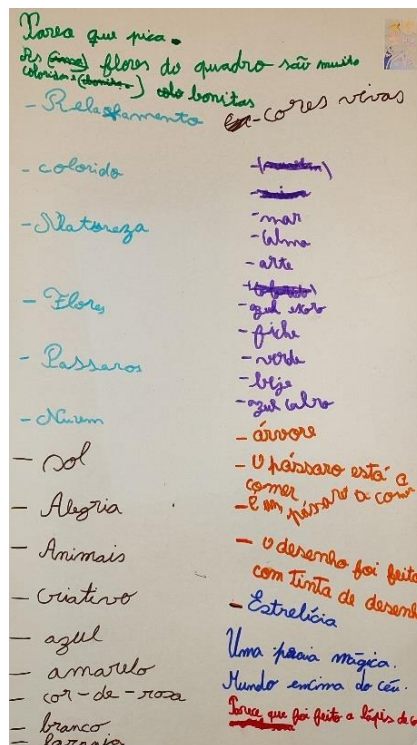 Parece que pica.
As flores do quadro são muito
coloridas e bonitas
- Relaxamento
- colorido
- Natureza
- Flores
- Pássaros
- Nuvem
- sol
- Alegria
- Animais
- criativo
- azul
- amarelo
- cor-de-rosa
- branco
- laranja
- cores vivas
- mar
- calma
- arte
- azul
- verde
- beje
- azul
- árvore
- O pássaro está a
comer
- É um pássaro a
- O desenho foi feito
com tinta de
- Estrelícia
Uma mágica.
Mundo encima do céu.
Parece que foi feito a lápis de